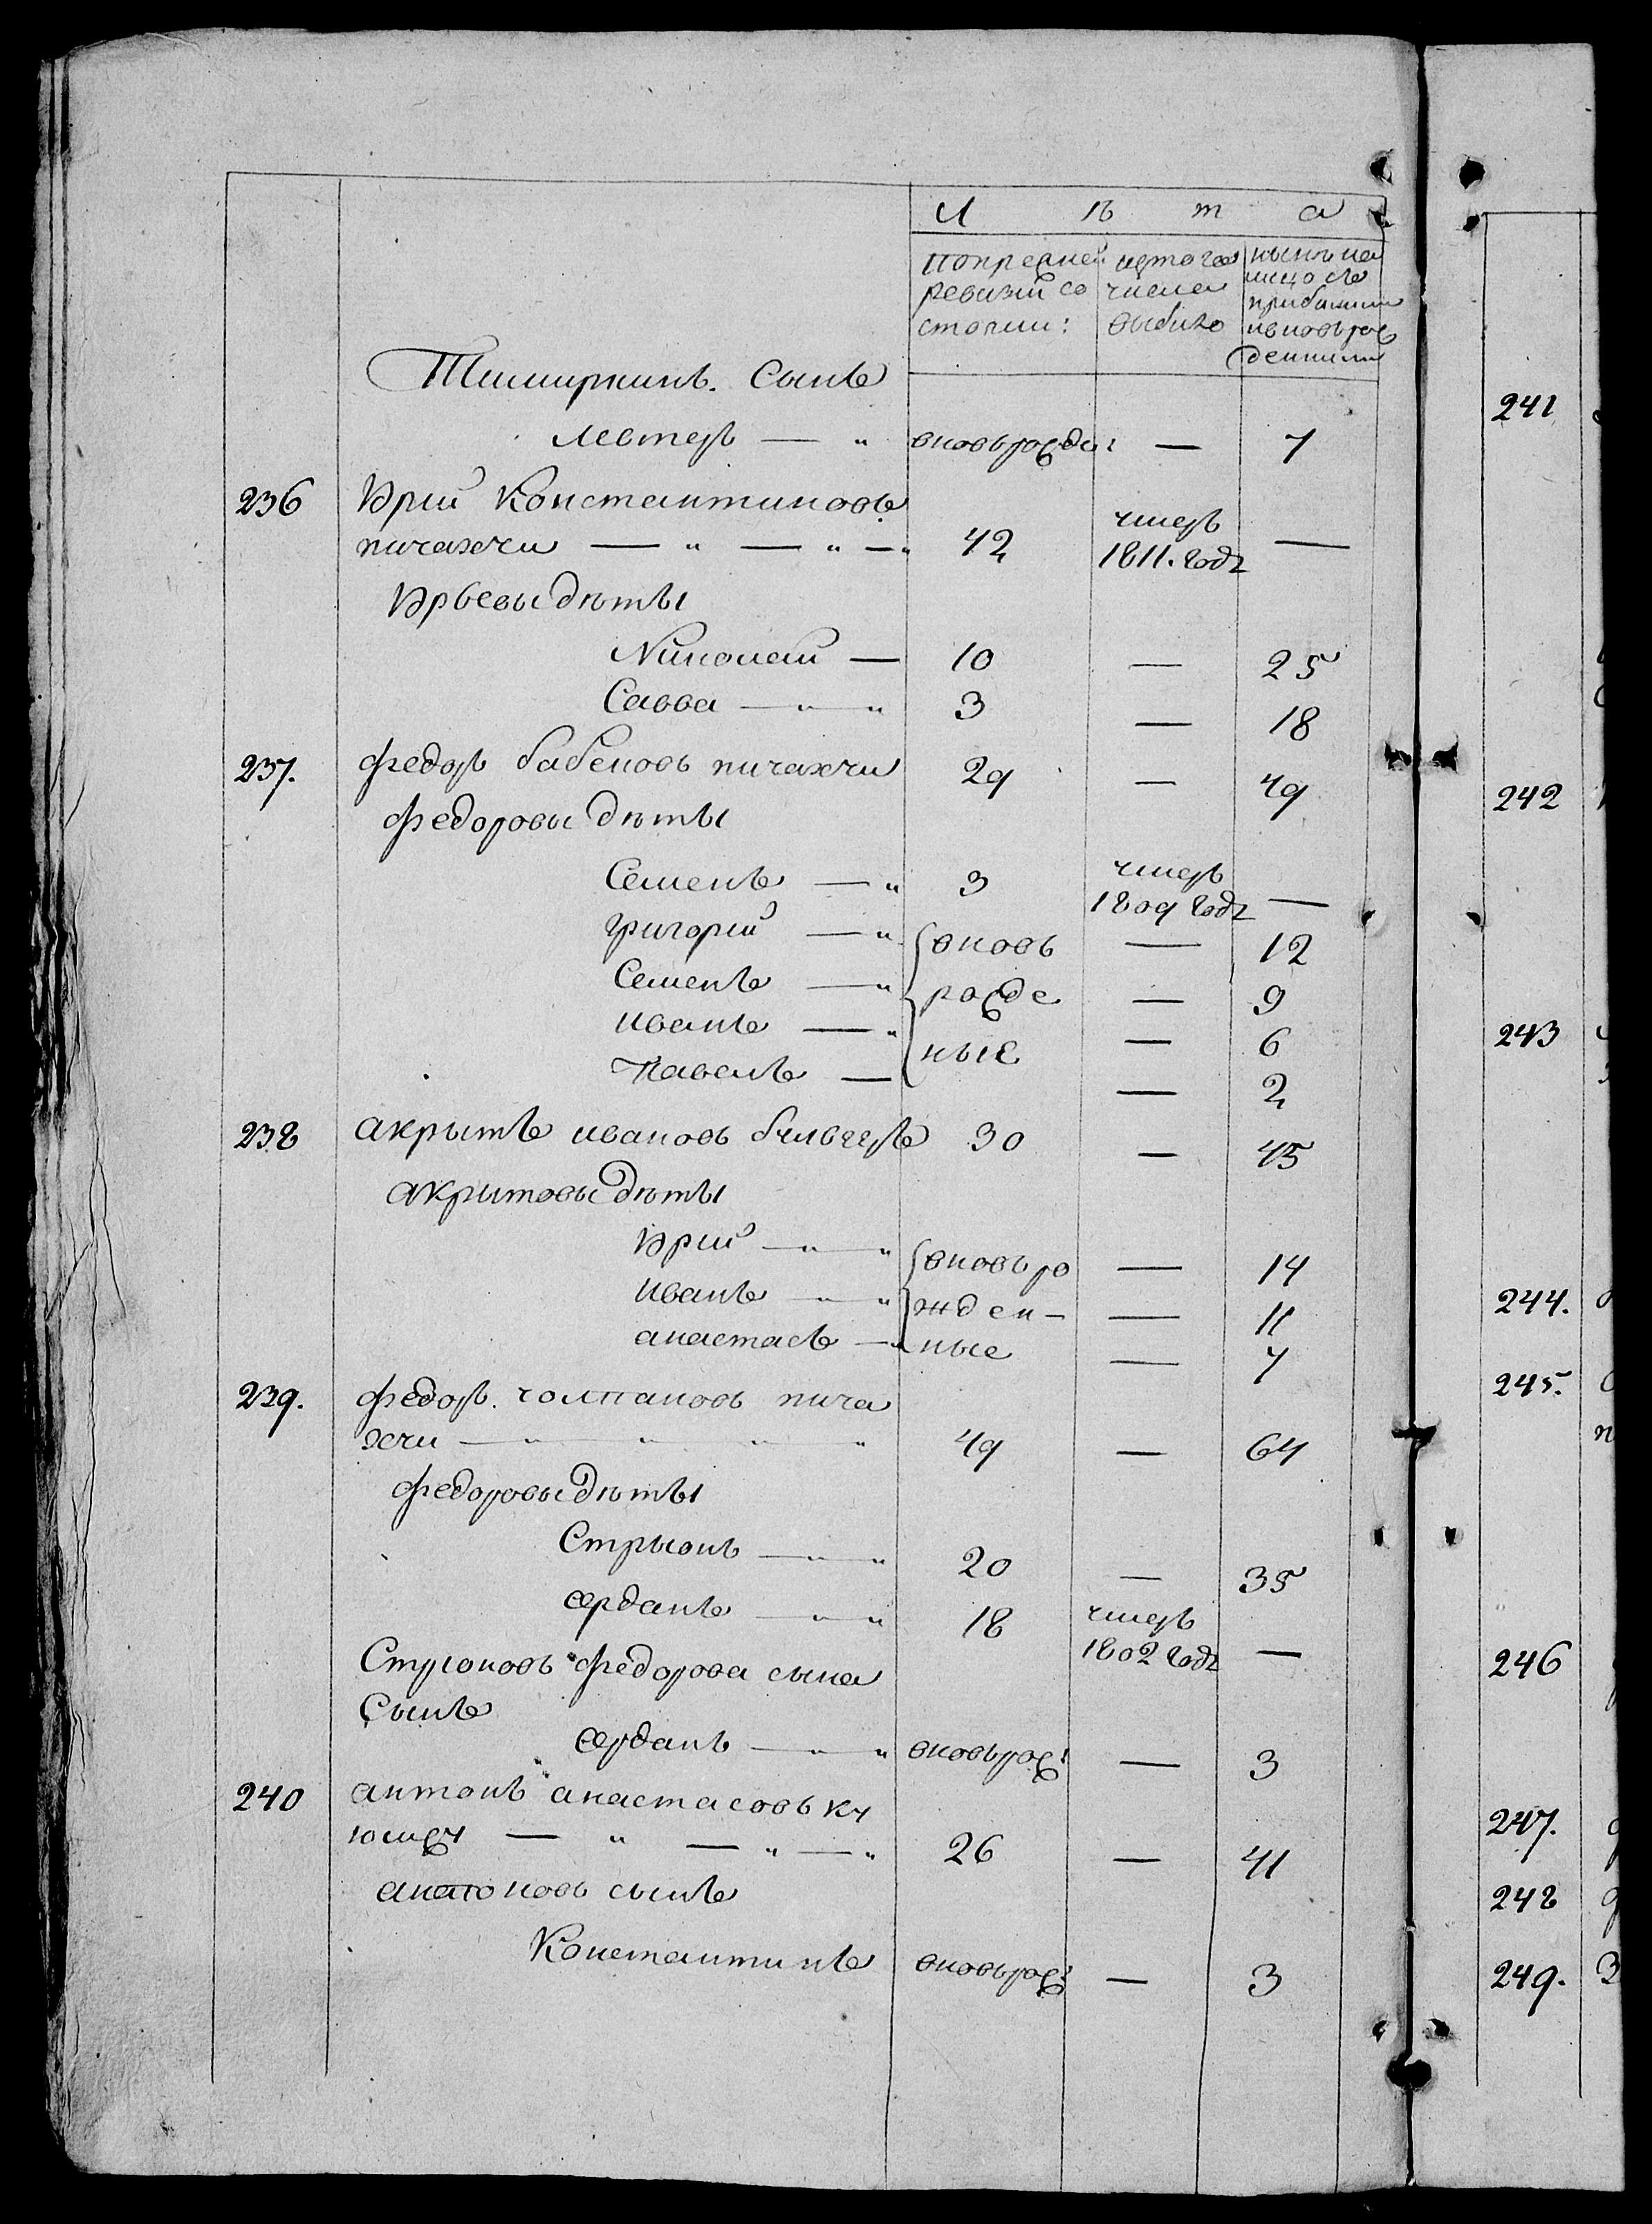 Л ѣ т а
попредней
ревизіи со
стояли:
изтого
числа
выбыло
нынѣ на
лицо съ
прибылыми
ивновьрож
денными
Темиркинъ. Сынъ
Левтеръ — " вновьрожде: — 7
236 Юрий Константиновъ
пичахчи — " — " — " 42 умеръ 1811. годȣ —
Юрьевы дѣтьı
Николай — 10 — 25
Савва — " — " 3 — 18
237. федоръ бабеновъ пичахчи 29 — 49
федоровы дѣтьı
Семенъ — " 3 умеръ 1809 годȣ —
григорий — " вновь — 12
Семенъ — " рожде — 9
иванъ — " ные — 6
Павелъ — — 2
238 акрытъ ивановъ 30 — 45
акрытовы дѣтьı
Юрий — " — " вновь ро — 14
иванъ — " — " жден– — 11
анастасъ — " ные — 7
239. федоръ. чолпановъ пича
хчи — " — " — " — " 49 — 64
федоровы дѣтьı
Стрыонъ — " — " 20 — 35
сердань — " — " 18 умеръ 1802 годȣ —
Стрионовъ федорова сына
Сынъ
серданъ — " — " вновьрож: — 3
240 антонъ анастасовъ кȣ
юмжȣ — " — " — " 26 — 41
анатоновъ сынъ
Константинъ вновьрож: — 3
241
242
243
244.
245.
246
247.
248
249. З